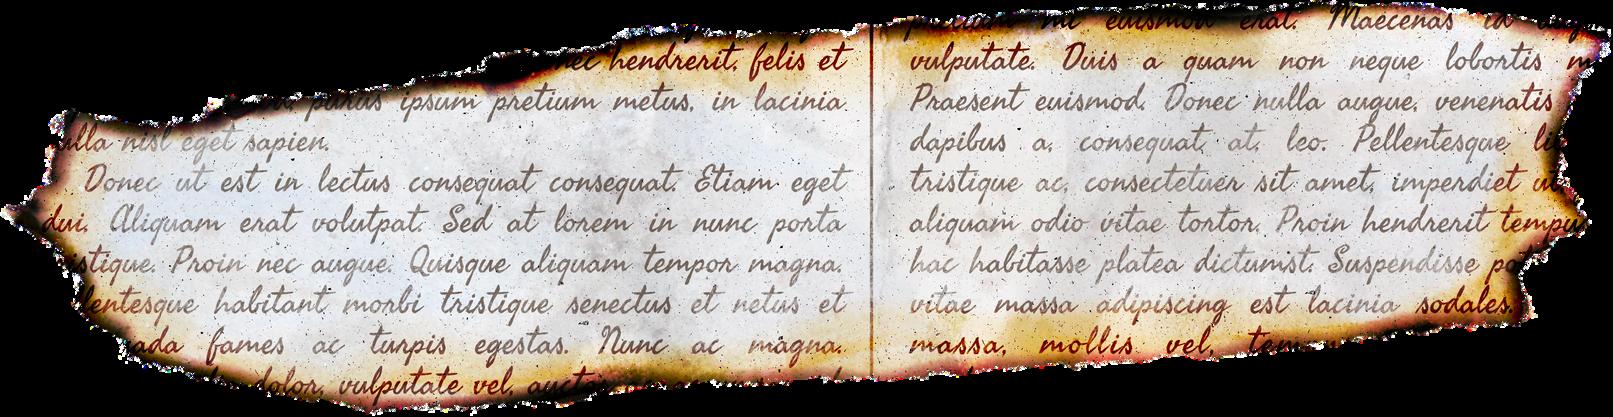 hendrerit, felis et
purus ipsum pretium metus, in lacinia
nulla nisl eget sapien.
Donec ut est in lectus consequat consequat. Etiam eget
dui. Aliquam erat volutpat. Sed at lorem in nunc porta
tristique. Proin nec augue. Quisque aliquam tempor magna.
Pellentesque habitant morbi tristique senectus et netus et
fames ac turpis egestas. Nunc ac magna.
dolor, vulputate vel, auctor
pretium mi euismod erat. Maecenas id
vulputate. Duis a quam non neque lobortis
Praesent euismod. Donec nulla augue, venenatis
dapibus a, consequat at, leo. Pellentesque
tristique ac, consectetuer sit amet, imperdiet
aliquam odio vitae tortor. Proin hendrerit
hac habitasse platea dictumst. Suspendisse
vitae massa adipiscing est lacinia sodales.
massa, mollis vel,